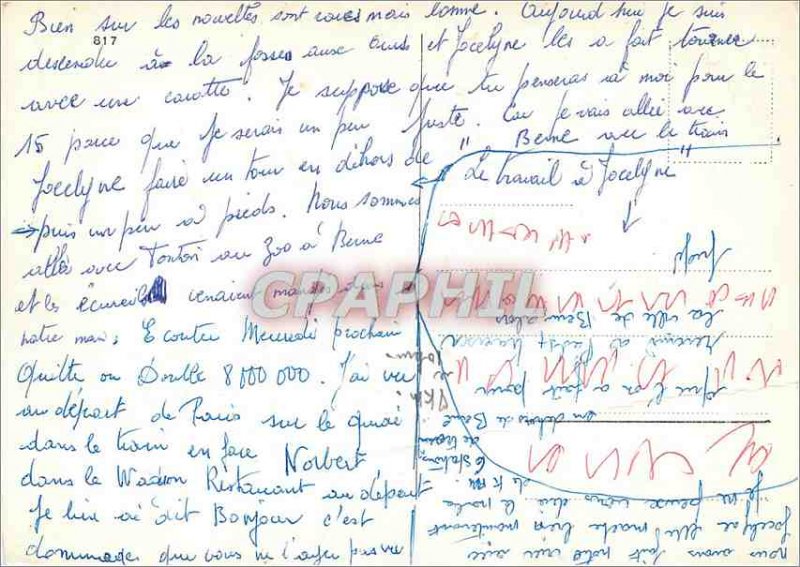 Bien sur les nouvelles sont rares mais bonne. Aujourd'hui je suis
817
descendu à la fosse aux ours et Jocelyne les a fait tourner
avec une carotte. Je suppose que tu penseras à moi pour le
15 parce que je serais un peu juste. Car je vais allée avec
Jocelyne faire un tour en dehors de " Berne avec le train "
→ puis un peu à pieds. Nous sommes
allée avec Tonton au Zoo à Berne
et les écureuil venaient manger dans
notre main. Ecoutez Mercredi prochain
Quitte ou Double 8 000 000. J'ai vu
au départ de Paris sur le quai
dans le train en face Norbert
dans le Wagon Restaurant au départ
Je lui ai dit Bonjour c'est
dommage que vous ne l'ayez pas vu
Le travail à Jocelyne
CPAPHIL
la ville de Berne alors
que l'on a fait pour
en dehors de Berne
6 stations
de train
nous avons fait
Jocelyne elle marche bien maintenant
Je ne peux vous dire le